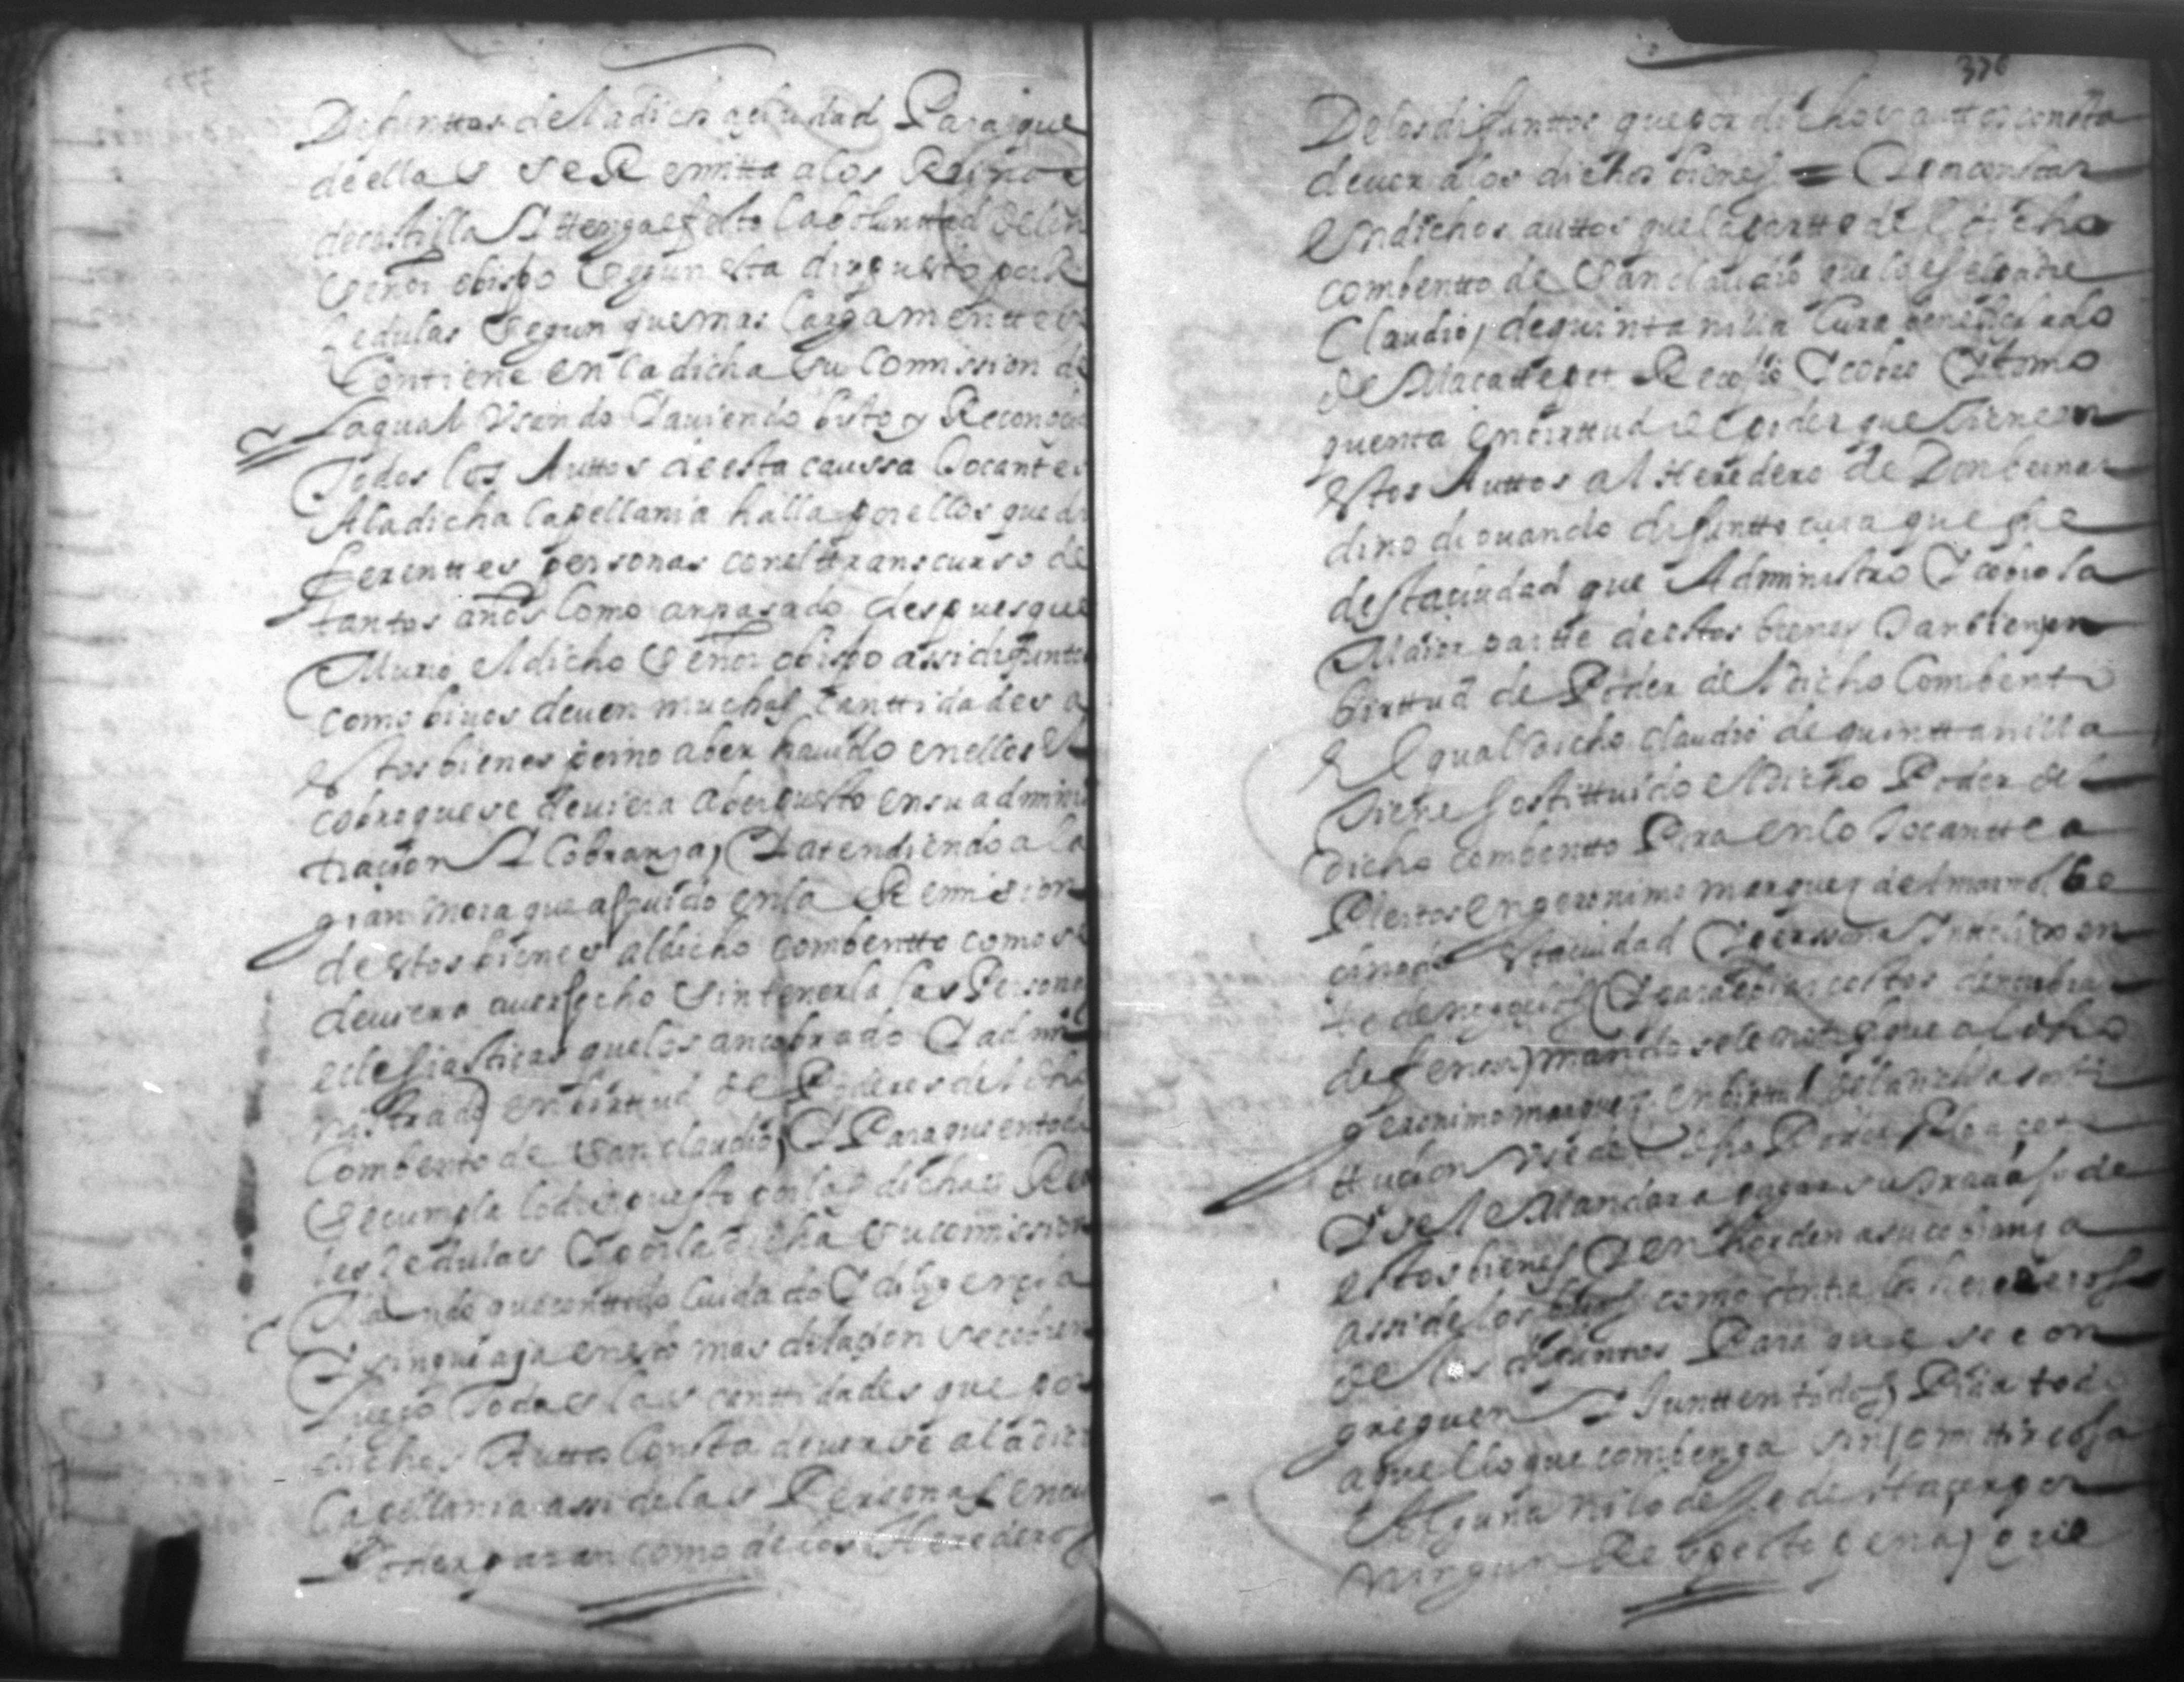 Defunttos de la dicha ciudad Para que
de ella s se Remitta a los Reinos
de castilla Y ttenga efecto la boluntad del dho
Señor obispo Segun esta dispuesto por R
Cedulas Segun que mas largamentte se
Contiene en la dicha su Comission de
la qual Usando Y auiendo bisto y Reconoci
Todos los Auttos de esta caussa tocantes
A la dicha Capellania halla por ellos que di
ferenttes personas con el ttranscurso de
tantos años Como an pasado despues que
Murio el dicho Señor obispo assi difuntos
como biuos deuen muchas Canttidades a
estos bienes por no aber hauido en ellos el
cobro que se deuiera aber puesto en su adminis
tracion Y Cobranza, Y atendiendo a la
gran mora que a hauido en la Remission
de estos bienes al dicho combentto como se
deuiera auer fecho Sin tenerla las Personas
eclesiasticas que los an cobrado Y admi
nistrado en birttud de Poderes del dho
Combento de San claudio, Y Para que en todo
Se cumpla lo dispuesto por las dichas Rea
les Cedulas Y por la dicha Su comission
Mando que con ttodo Cuidado Y diligencia
Y sin que aya en esto mas dilacion se cobren
luego Todas las canttidades que por
dichos Auttos Consta deuerse a la dicha
Capellania assi de las Personas en cuio
Poder paran como de los Herederos
376
De los difuntos que por dichos auttos consta
deuer a los dichos bienes = Y en constar
en dichos auttos que la partte del dicho
combentto de San claudio que lo es el padre
Claudio, de quintanilla Cura beneficiado
de Recojio Y cobro Y tomo
quenta en birttud del poder que tiene en
estos Auttos al Heredero de Don bernar
dino de ouando difuntto cura que fue
de sta ciudad que Administro Y cobro la
Maior partte de estos bienes tanbien en
birttud de Poder del dicho Combento
el qual dicho claudio de quinttanilla
tiene sostittuido el dicho Poder del
dicho combentto Para en lo tocantte a
Pleitos en geronimo marquez del marmol be
cino de esta ciudad Y persona
te de negocios Y para
mando se le notifique al dho
geronimo marquez en birttud de la dicha sosti
ttucion Use del dho Poder
Y se le Mandara pagar su trauajo de
estos bienes Y en horden a su cobranza
assi de los biuos como contra los herederos
de los difuntos Para que se con
greguen Y Juntten todos, Pida todo
aquello que combenga sin omittir cosa
Alguna ni lo deje de Hacer por
ningun Respecto pena, que